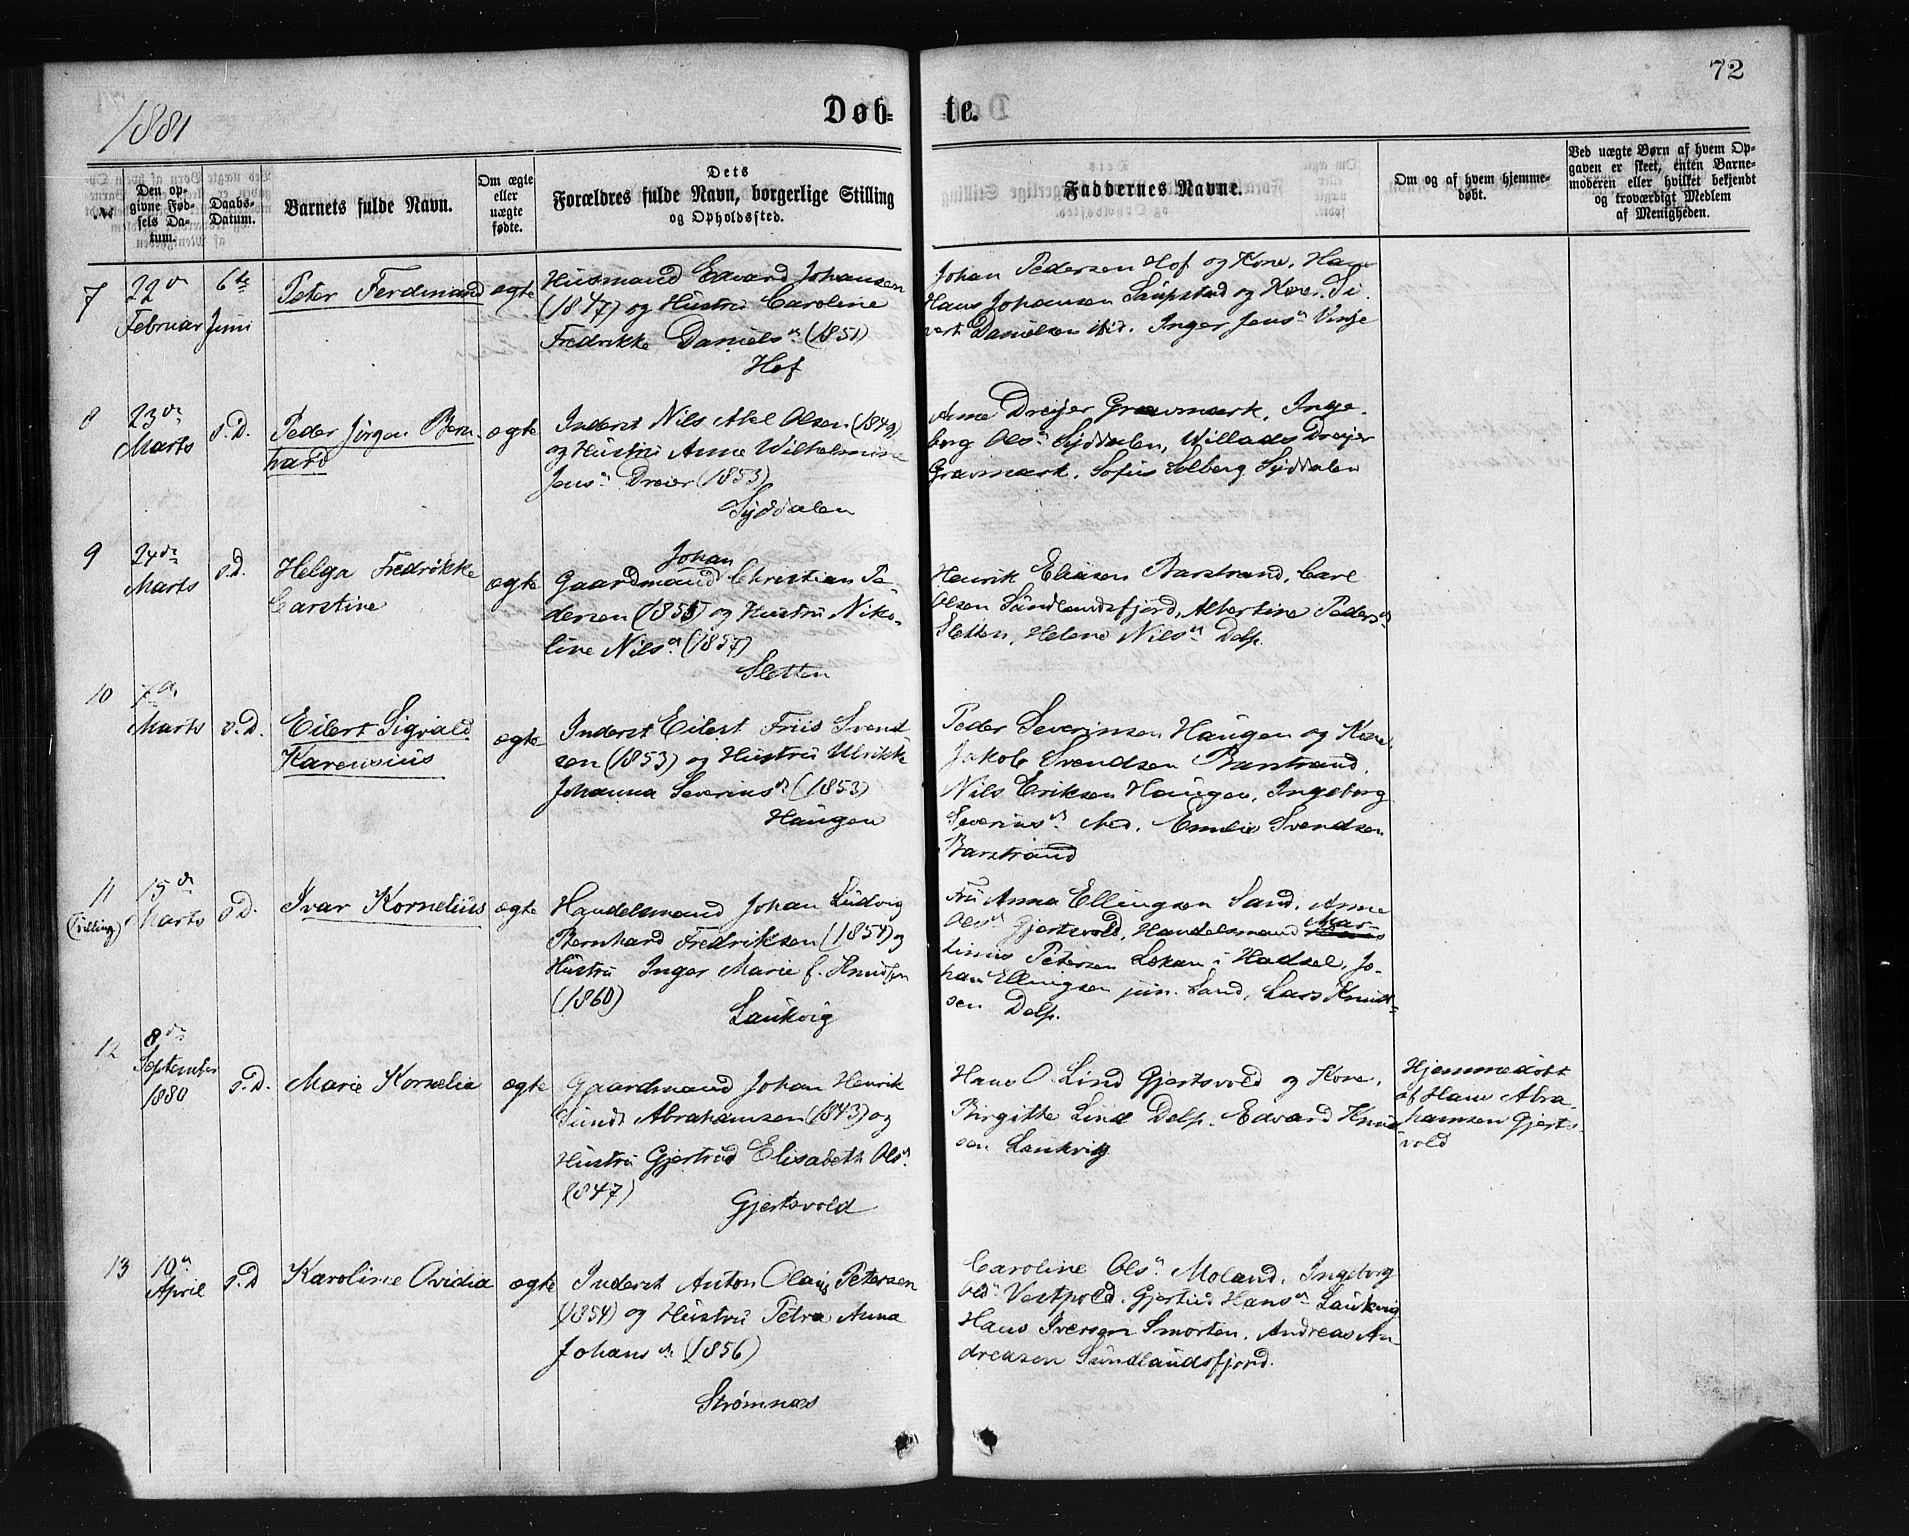 72
1881
Døb-
te.
No
Den op-
givne Fød-
sels Da-
tum.
Daabs-
Datum.
Barnets fulde Navn.
Om ægte
eller
uægte
fødte.
Dets
Forældres fulde Navn, borgerlige Stilling
og Opholdssted.
Faddernes Navne.
Om og af hvem hjemme-
døbt.
Ved uægte Børn af hvem Op-
gaven er skeet, enten Barne-
moderen eller hvilket bekjendt
og troværdigt Medlem
af Menigheden.
7
22de
Februar
6te
Juni
Peter Ferdinand
ægte
Husmand Edvard Johansen
(1847) og Hustru Caroline
Fredrikke Danielsd. (1851)
Hof
Johan Pedersen Hof og Kone, Hans
Hans Johansen Saupstad og Kone, Si-
vert Danielsen ibid. Inger Jensd. Vinje
8
23de
Marts
s.D.
Peder Jørgen Bern-
hard
ægte
Inderst Nils Abel Olsen (1849)
og Hustru Anne Wilhelmine
Jensd. Dreier (1853)
Syddalen
Anne Dreijer Gravmark, Inge-
borg Olsd. Syddalen, Willads Dreijer
Gravmark, Sofus Solberg Syddalen
9
24de
Marts
s.D.
Helga Fredrikke
Carstine
ægte
Johan
Gaardmand Christian Pe-
dersen (1855) og Hustru Niko-
line Nilsd. (1857)
Sletten
Henrik Eliasen Barstrand, Carl
Olsen Sundlandsfjord, Albertine Pedersd.
Sletten, Helene Nilsd. Dolp.
10
7de
Marts
s.D.
Eilert Sigvald
Karensius
ægte
Inderst Eilert Friis Svend-
sen (1853) og Hustru Ulrikke
Johanna Severinsd. (1853)
Haugen
Peder Severinsen Haugen og Kone,
Jakob Svendsen Barstrand,
Nils Eriksen Haugen, Ingeborg
Severinsd. ibid. Emilie Svendsen
Barstrand
11
(Tvilling)
15de
Marts
s.D.
Ivar Kornelius
ægte
Handelsmand Johan Ludvig
Bernhard Fredriksen (1854) og
Hustru Inger Marie f. Knudsen
(1860)
Laukvig
Fru Anna Ellingsen Sand, Anne
Olsd. Gjertsvold, Handelsmand Mar-
tinus Petersen Lekan i Hadsel, Jo-
han Ellingsen jun. Sand, Lars Knud-
sen Dolp.
12
8de
September
1880
s.D.
Marie Kornelia
ægte
Gaardmand Johan Henrik
Sundt Abrahamsen (1843) og
Hustru Gjertrud Elisabeth Olsd.
(1847)
Gjertsvold
Hans O. Lind Gjertsvold og Kone,
Birgitte Lind Dolp. Edvard Knud-
sen Laukvig
Hjemmedøbt
af Hans Abra-
hamsen Gjerts-
vold
13
10de
April
s.D
Karoline Ovidia
ægte
Inderst Anton Olaus Petersen
(1854) og Hustru Petra Anna
Johansd. (1856)
Strømnæs
Caroline Olsd. Moland, Ingeborg
Olsd. Vestpold, Gjertrud Hansd. Laukvig
Hans Iversen Smorten, Andreas An-
dreasen Sundlandsfjord.